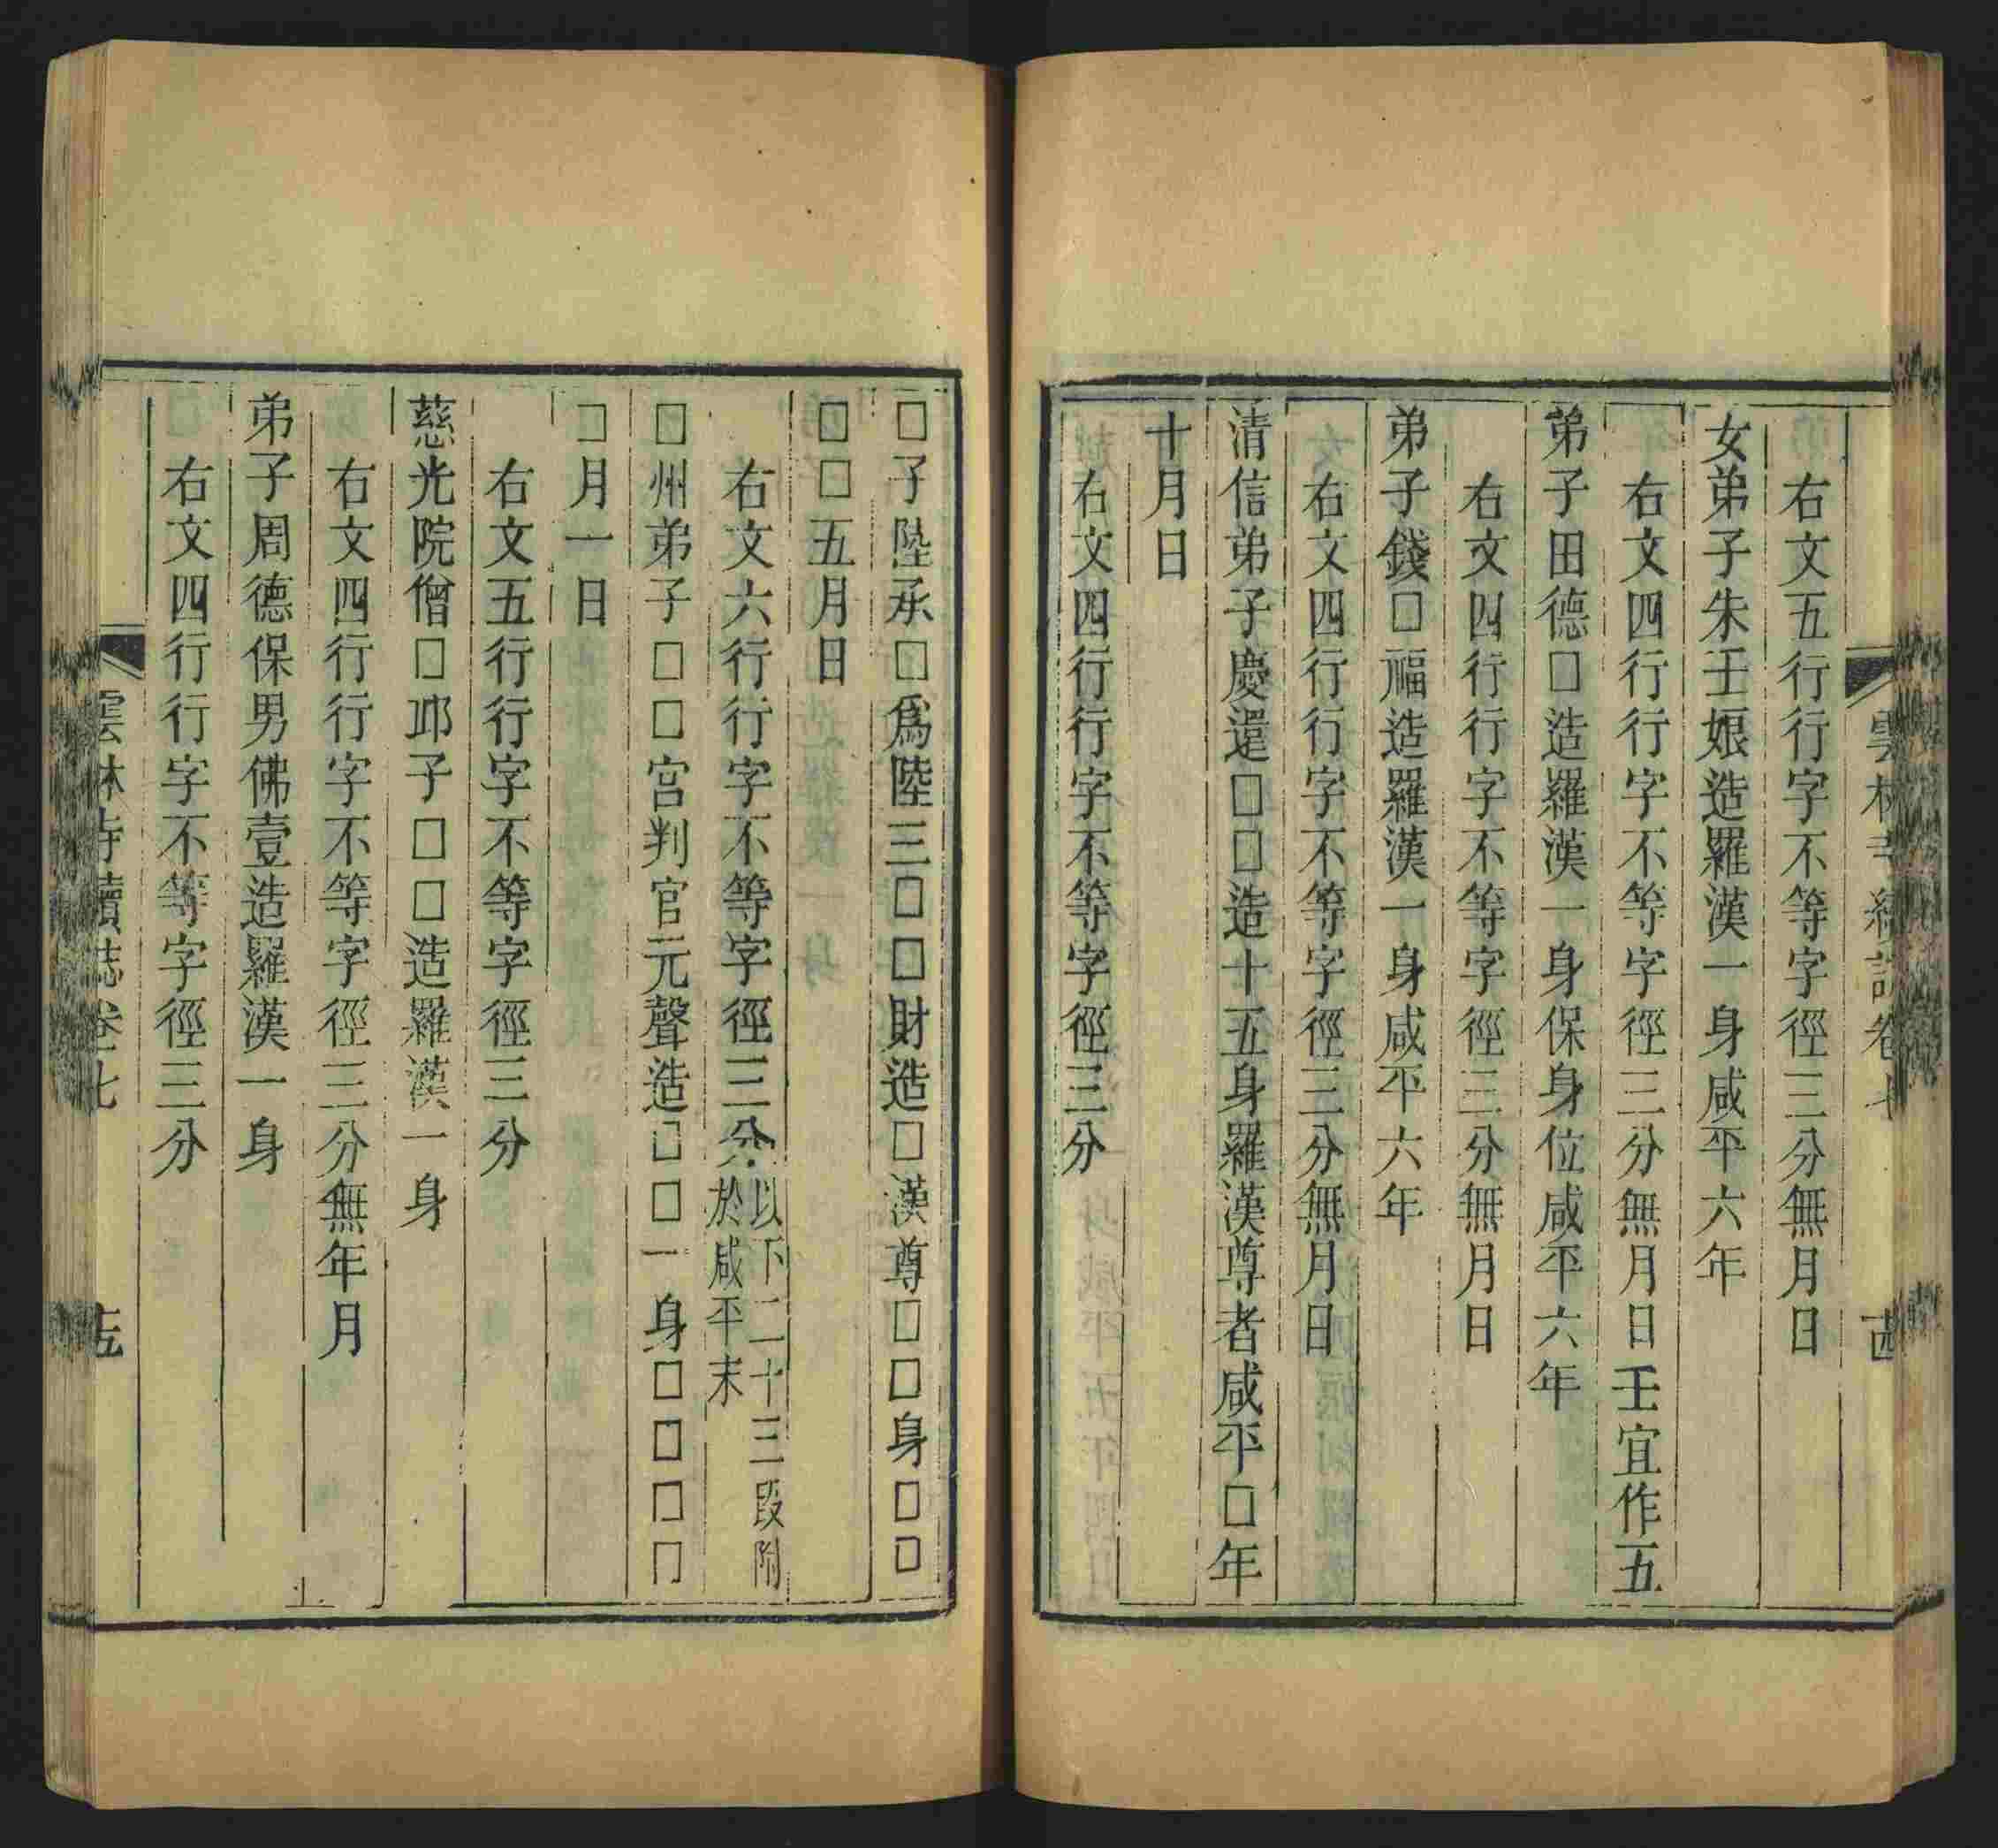 右文五行行字不等字徑三分無月日
女弟子朱壬娘造羅漢一身咸平六年
右文四行行字不等字徑三分無月日壬宜作五
弟子田德□造羅漢一身保身位咸平六年
右文四行行字不等字徑三分無月日
弟子錢□福造羅漢一身咸平六年
右文四行行字不等字徑三分無月日
清信弟子慶還□□造十五身羅漢尊者咸平□年
十月日
右文四行行字不等字徑三分
□子陸承□爲陸三□□財造□漢尊□□身□□
□□五月日
右文六行行字不等字徑三分以下二十三段附於咸平末
□州弟子□□宫判官元聲造□□一身□□□□
□月一日
右文五行行字不等字徑三分
慈光院僧□邛子□□造羅漢一身
右文四行行字不等字徑三分無年月
弟子周德保男佛壹造羅漢一身
右文四行行字不等字徑三分
雲林寺續誌卷七